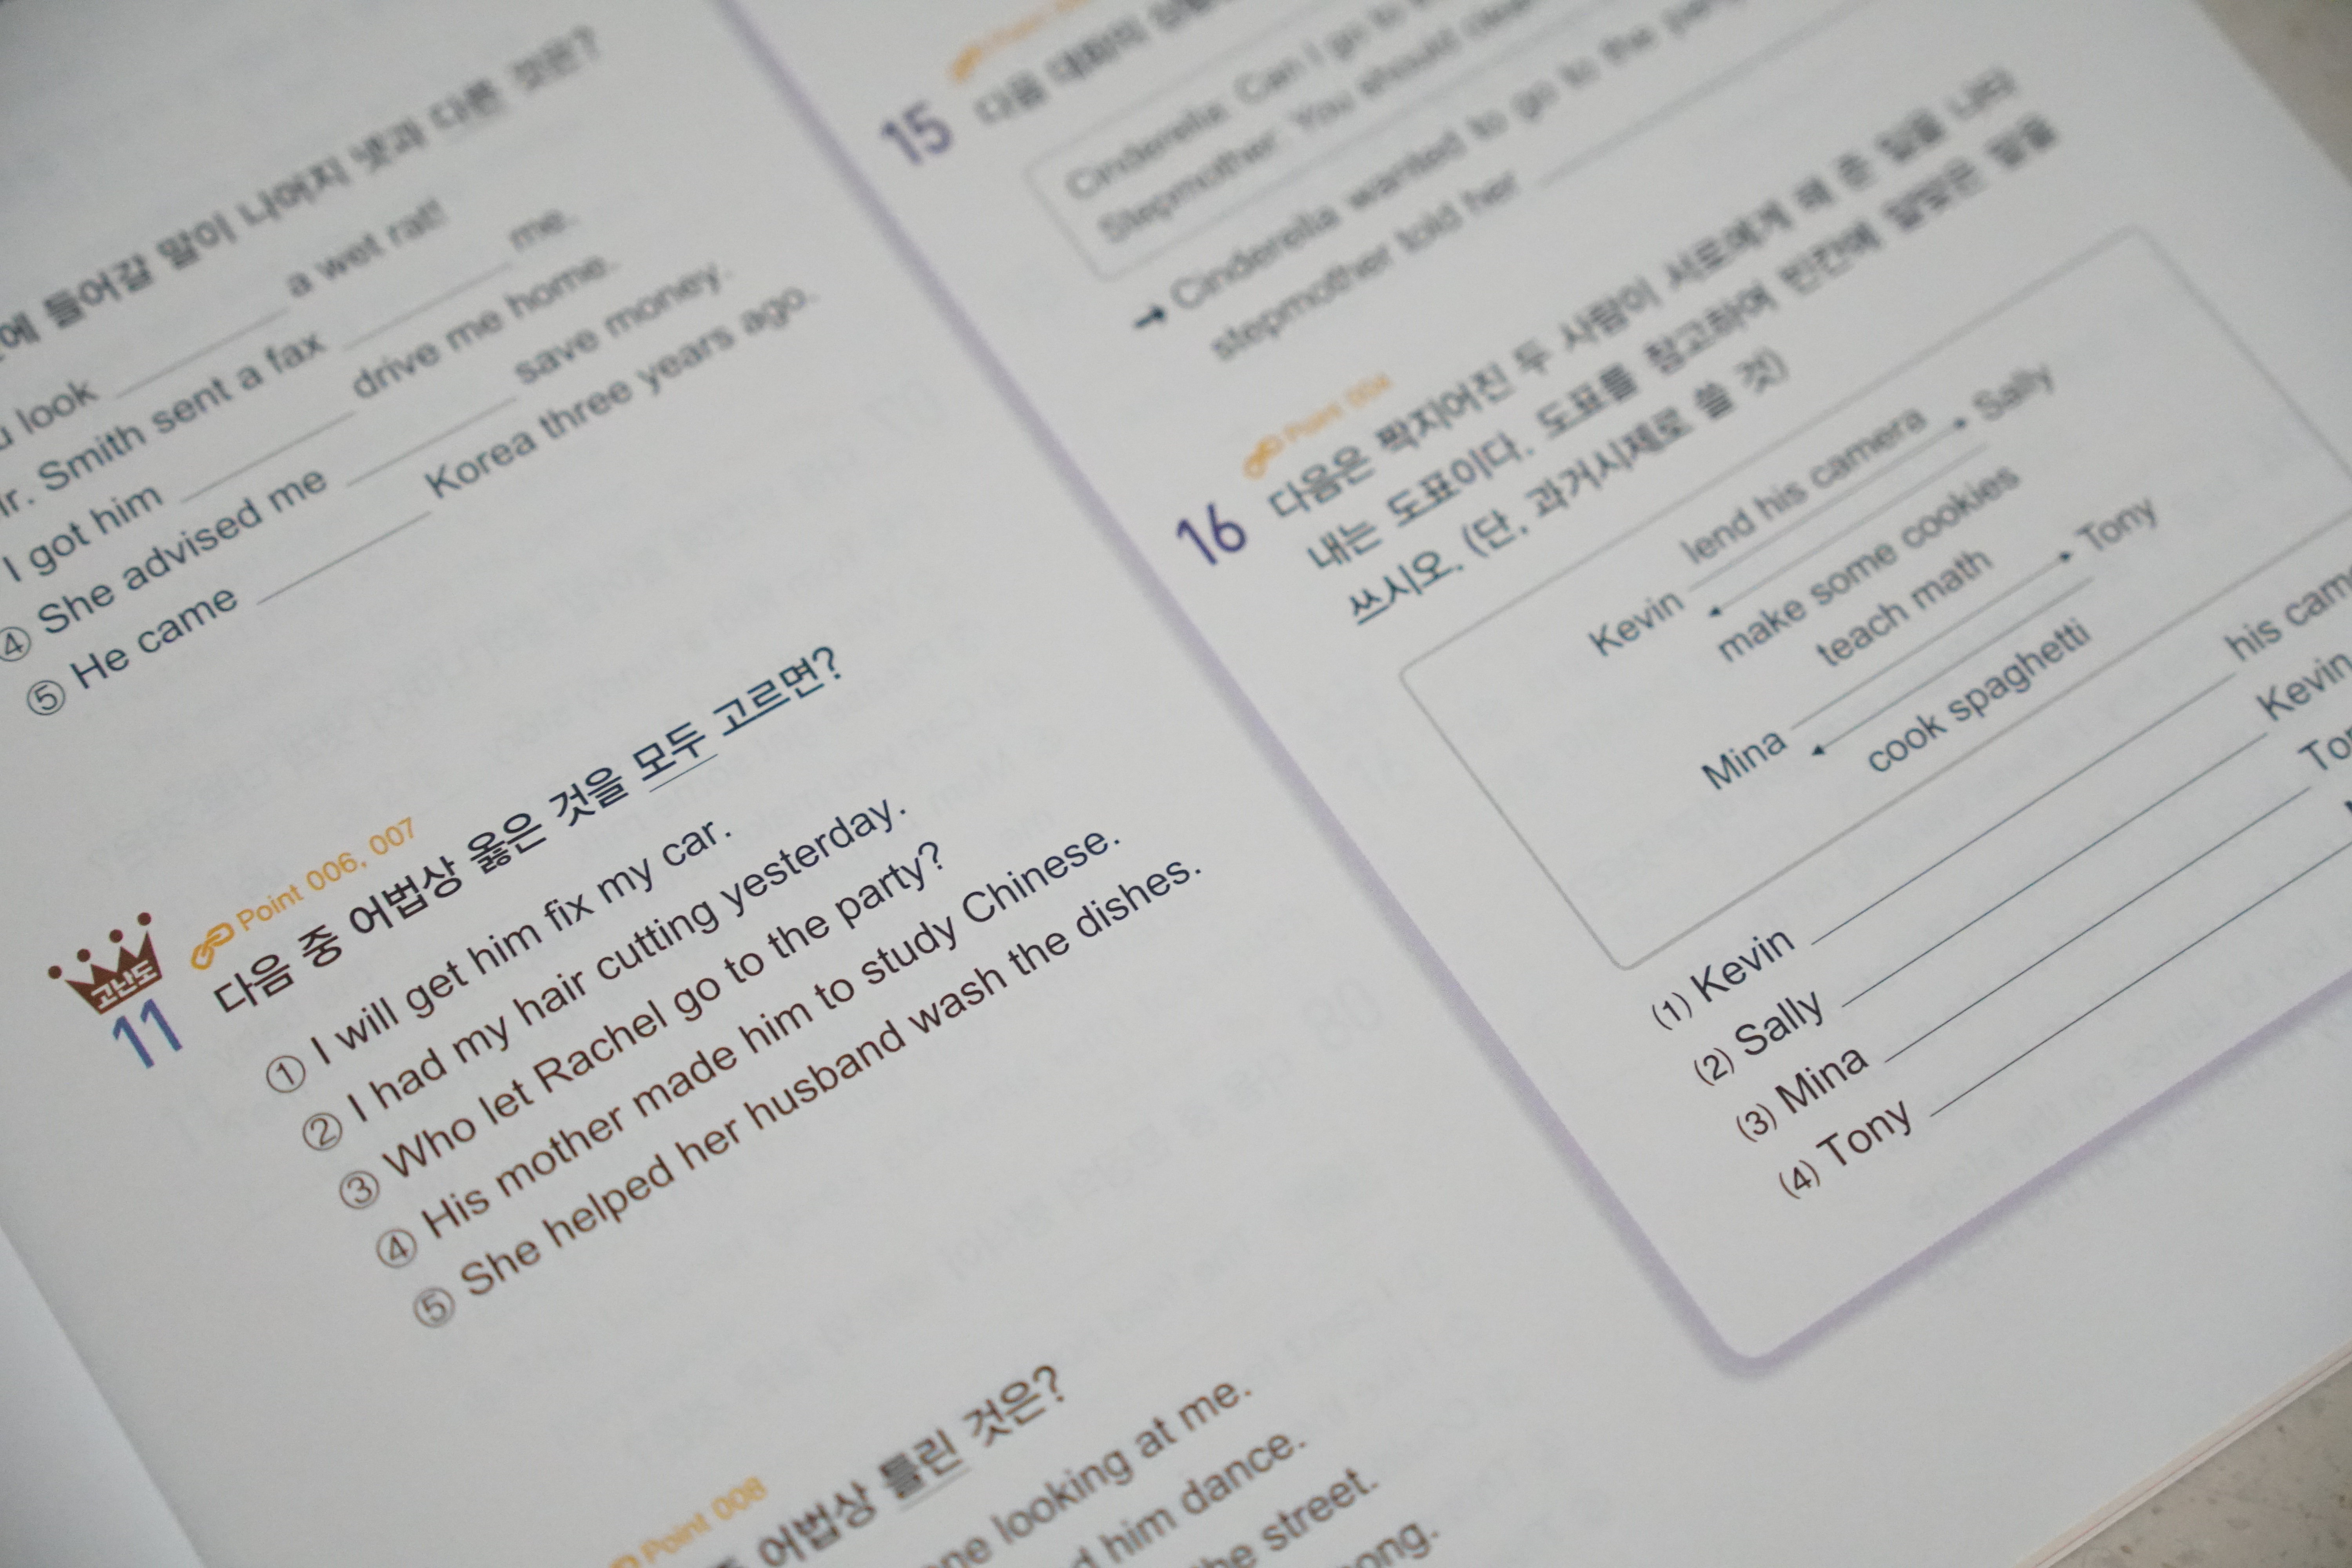 에 들어갈 말이 나머지 넷과 다른 것은?
look ______ a wet rat!
Smith sent a fax ______ me.
I got him ______ drive me home.
④ She advised me ______ save money.
⑤ He came ______ Korea three years ago.
고난도
Point 006, 007
11 다음 중 어법상 옳은 것을 모두 고르면?
① I will get him fix my car.
② I had my hair cutting yesterday.
③ Who let Rachel go to the party?
④ His mother made him to study Chinese.
⑤ She helped her husband wash the dishes.
Point 008
어법상 틀린 것은?
looking at me.
him dance.
the street.
15 다음 대화의
Cinderella: Can I go to
Stepmother: You should clean
→ Cinderella wanted to go to the party
stepmother told her ______
Point 004
16 다음은 짝지어진 두 사람이 서로에게 해 준 일을 나타
내는 도표이다. 도표를 참고하여 빈칸에 알맞은 말을
쓰시오. (단, 과거시제로 쓸 것)
lend his camera
Kevin Sally
make some cookies
teach math
Mina Tony
cook spaghetti
(1) Kevin ______ his
(2) Sally ______ Kevin
(3) Mina ______
(4) Tony ______